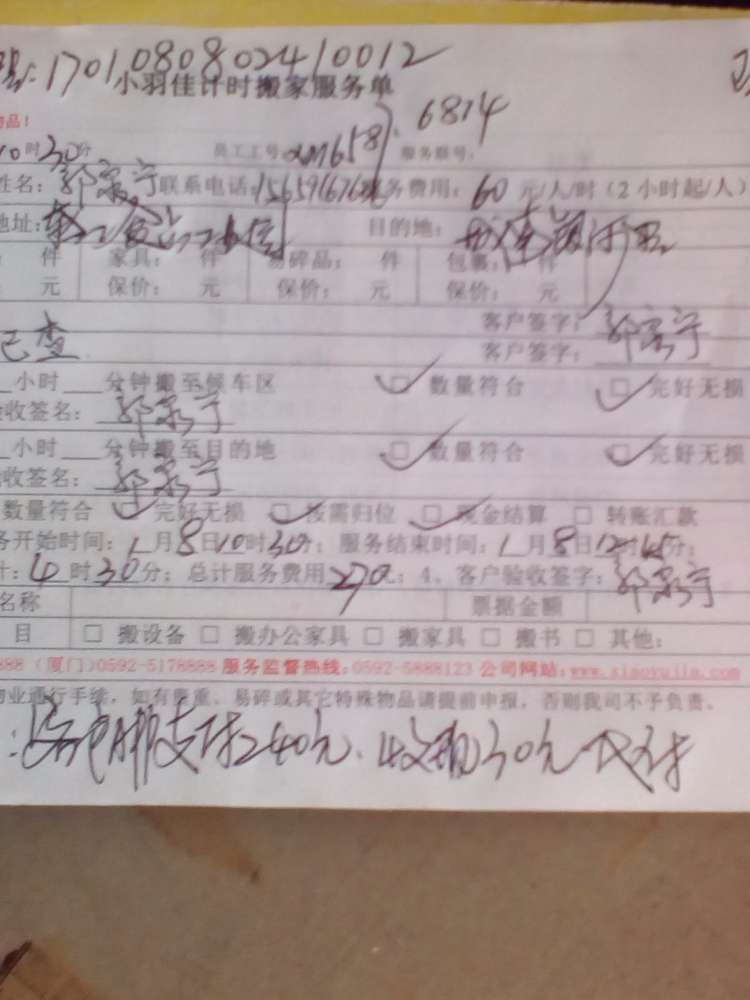 1701080802410012
小羽佳计时搬家服务单
物品!
6814
10时30分 员工工号 xm658 服务账号:
姓名: 郭 宁 联系电话: 服务费用: 60 元/人/时(2小时起/人)
地址: 目的地:
件 家具: 件 易碎品: 件 包裹: 件
元 保价: 元 保价: 元 保价: 元
客户签字:
已查 客户签字: 郭 宁
小时 分钟搬至候车区 数量符合 完好无损
验收签名: 郭 宁
小时 分钟搬至目的地 数量符合 完好无损
验收签名: 郭 宁
数量符合 完好无损 按需归位 现金结算 转账汇款
务开始时间: 1月8日10时30分; 服务结束时间: 1月8日 时 分;
计: 4时30分; 总计服务费用270元; 4、客户验收签字: 郭 宁
名称 票据金额
目 搬设备 搬办公家具 搬家具 搬书 其他:
888 (厦门)0592-5178888 服务监督热线:0592-5888123 公司网站:www.xiaoyujia.com
物业通行手续, 如有贵重、易碎或其它特殊物品请提前申报, 否则我司不予负责。
支付240元. 收现30元